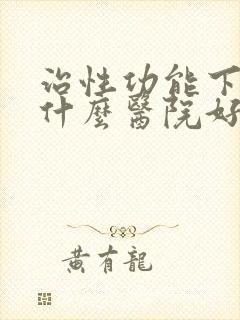 治性功能下
什麼醫院好
黃有龍